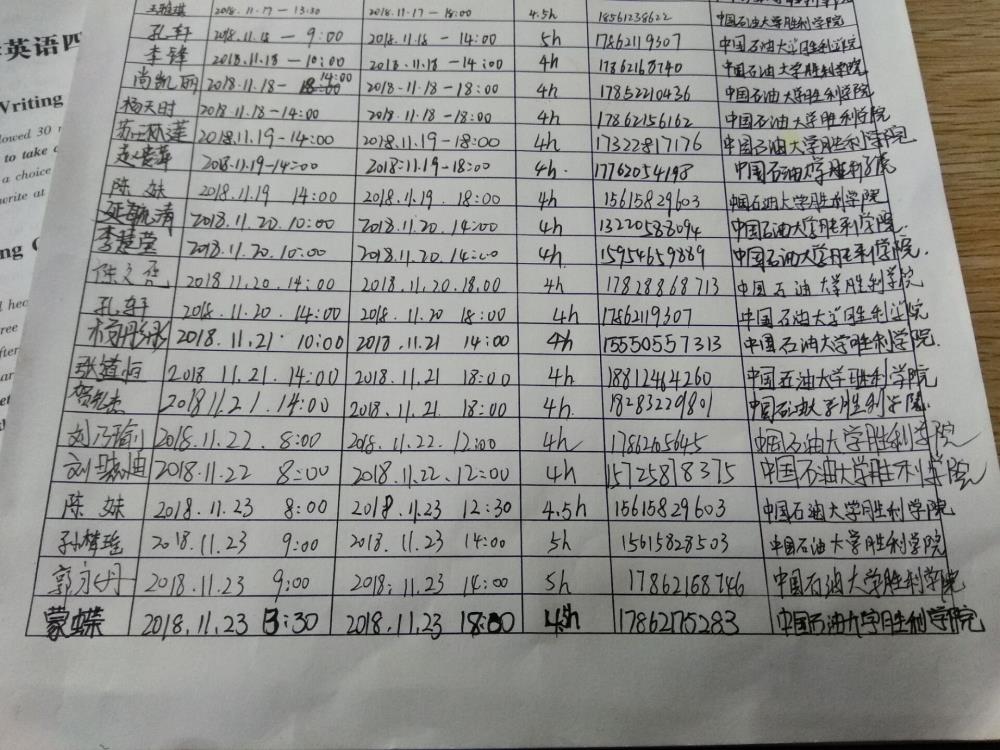 英语四
Writing
lowed 30
to take
a choice
write at
ng
l hec
ree
fter
ar
et
王雅琪 2018.11.17-13:30 2018.11.17-18:00 4.5h 18561238622 中国石油大学胜利学院
孔轩 2018.11.18-9:00 2018.11.18-14:00 5h 17862119307 中国石油大学胜利学院
李锋 2018.11.18-10:00 2018.11.18-14:00 4h 17862168740 中国石油大学胜利学院
尚凯丽 2018.11.18-14:00 2018.11.18-18:00 4h 17852210436 中国石油大学胜利学院
杨天时 2018.11.18-14:00 2018.11.18-18:00 4h 17862156162 中国石油大学胜利学院
2018.11.19-14:00 2018.11.19-18:00 4h 17322817176 中国石油大学胜利学院
2018.11.19-14:00 2018.11.19-18:00 4h. 17762054198 中国石油大学胜利学院
陈妹 2018.11.19 14:00 2018.11.19.18:00 4h 15615829603 中国石油大学胜利学院
2018.11.20.10:00 2018.11.20.14:00 4h 13220588094 中国石油大学胜利学院
李楚莹 2018.11.20.10:00 2018.11.20.14:00 4h 15954659889 中国石油大学胜利学院.
2018.11.20.14:00 2018.11.20.18.00 4h 17828868713 中国石油大学胜利学院
孔轩 2018.11.20.14:00 2018.11.20 18:00 4h 17862119307 中国石油大学胜利学院
2018.11.21. 10:00 2018.11.21 14:00 4h 15550557313 中国石油大学胜利学院.
张道恒 2018 11.21.14:00 2018.11.21 18:00 4h 18812464260 中国石油大学胜利学院
2018.11.21.14:00 2018.11.21.18:00 4h. 18283229801 中国石油大学胜利学院.
刘乃瑜 2018.11.22.8:00 2018.11.22.12:00 4h 1786265645 中国石油大学胜利学院
2018.11.22 8:00 2018.11.22.12:00 4h 15725878375 中国石油大学胜利学院
陈妹 2018.11.23 8:00 2018.11.23 12:30 4.5h 15615829603 中国石油大学胜利学院
孙梦瑶 2018.11.23 9:00 2018.11.23 14:00 5h 15615828503 中国石油大学胜利学院
郭永丹 2018.11.23 9:00 2018.11.23 14:00 5h 17862168746 中国石油大学胜利学院
蒙蝶 2018.11.23 13:30 2018.11.23 18:00 4.5h 17862175283 中国石油大学胜利学院